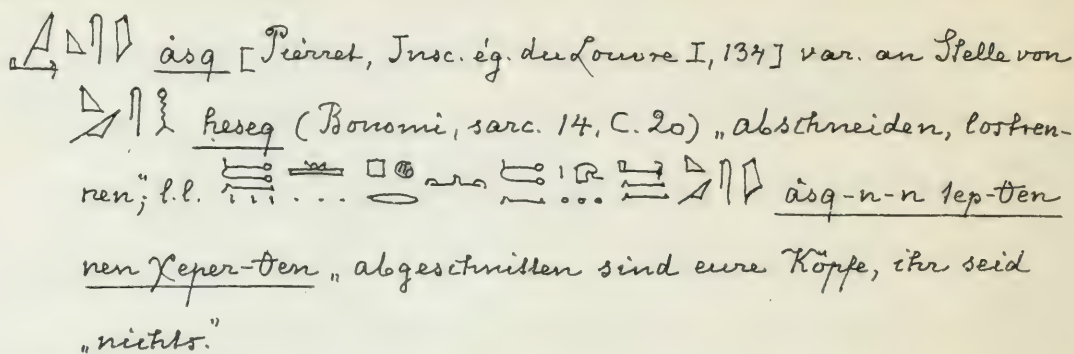 ȧsq [Pierret, Insc. ég. du Louvre I, 134] var. an Stelle von
ḥeseq (Bonomi, sarc. 14, C. 20) „abschneiden, lostren-
nen“; l.l. ȧsq-n-n tep-ten
nen χeper-ten „abgeschnitten sind eure Köpfe, ihr seid
„nichts.“